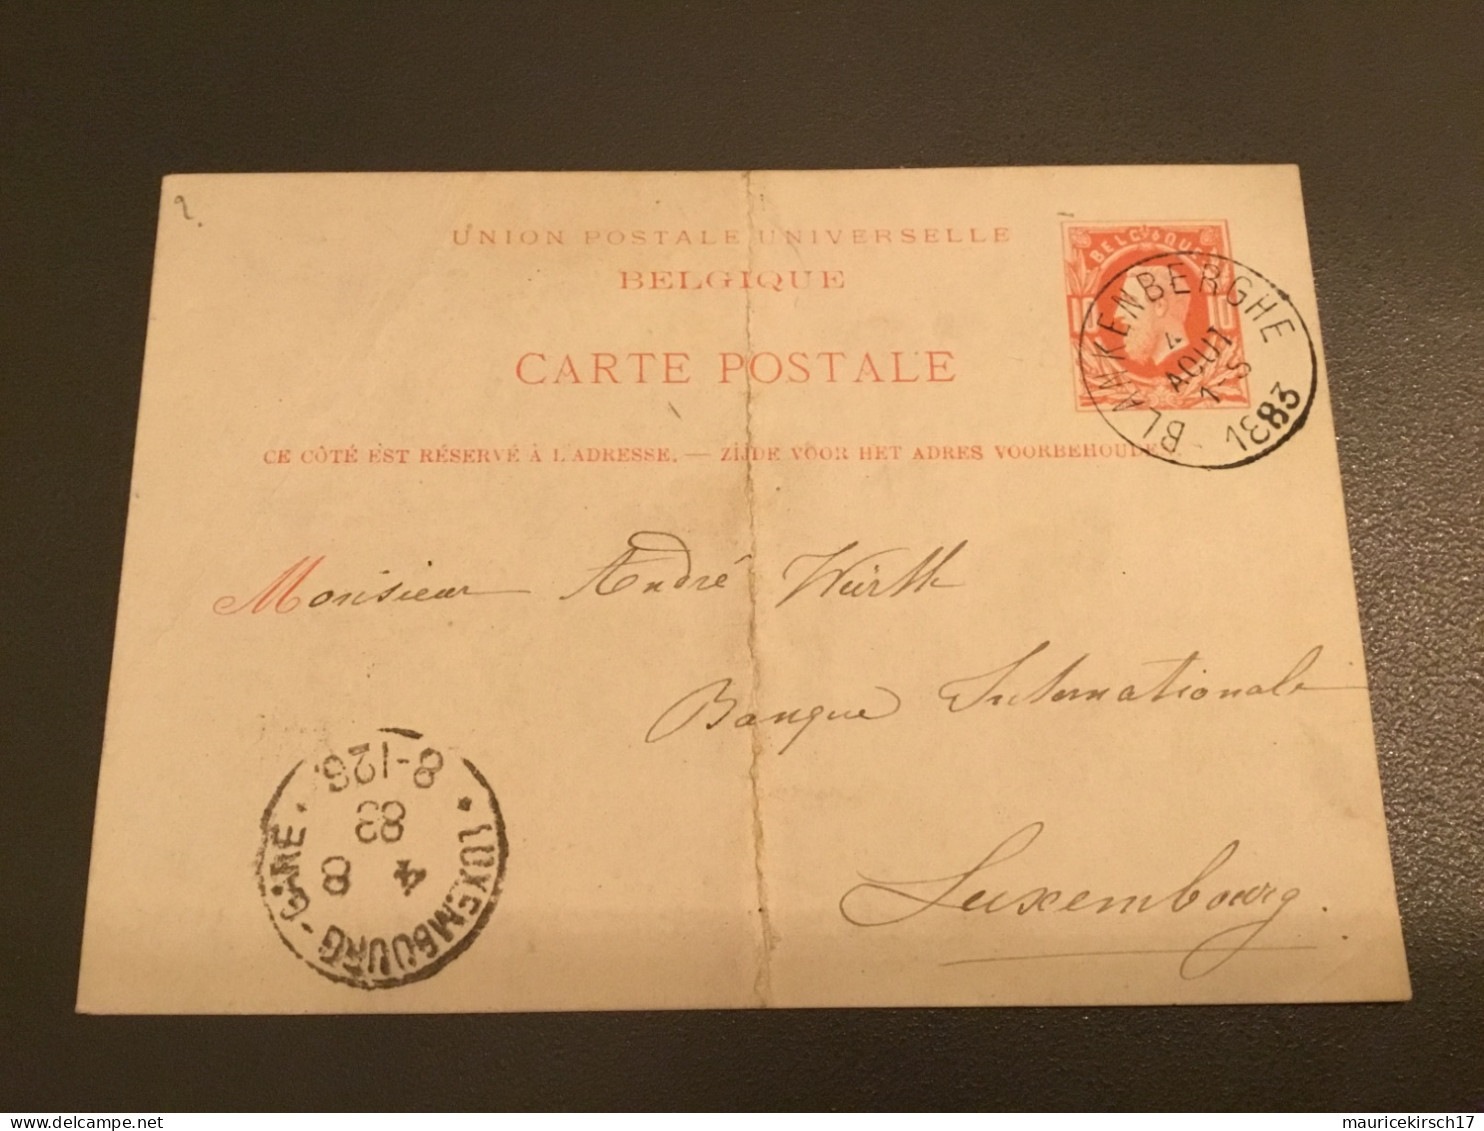 2.
UNION POSTALE UNIVERSELLE
BELGIQUE
CARTE POSTALE
BELGIQUE
10 10
BLANKENBERGHE
4
AOUT
1-S
1883
CE CÔTÉ EST RÉSERVÉ À L'ADRESSE. — ZIJDE VOOR HET ADRES VOORBEHOUDEN
Monsieur André Würth
Banque Internationale
Luxembourg.
LUXEMBOURG-GARE
4 8
83
8-12S.
delcampe.net
mauricekirsch17